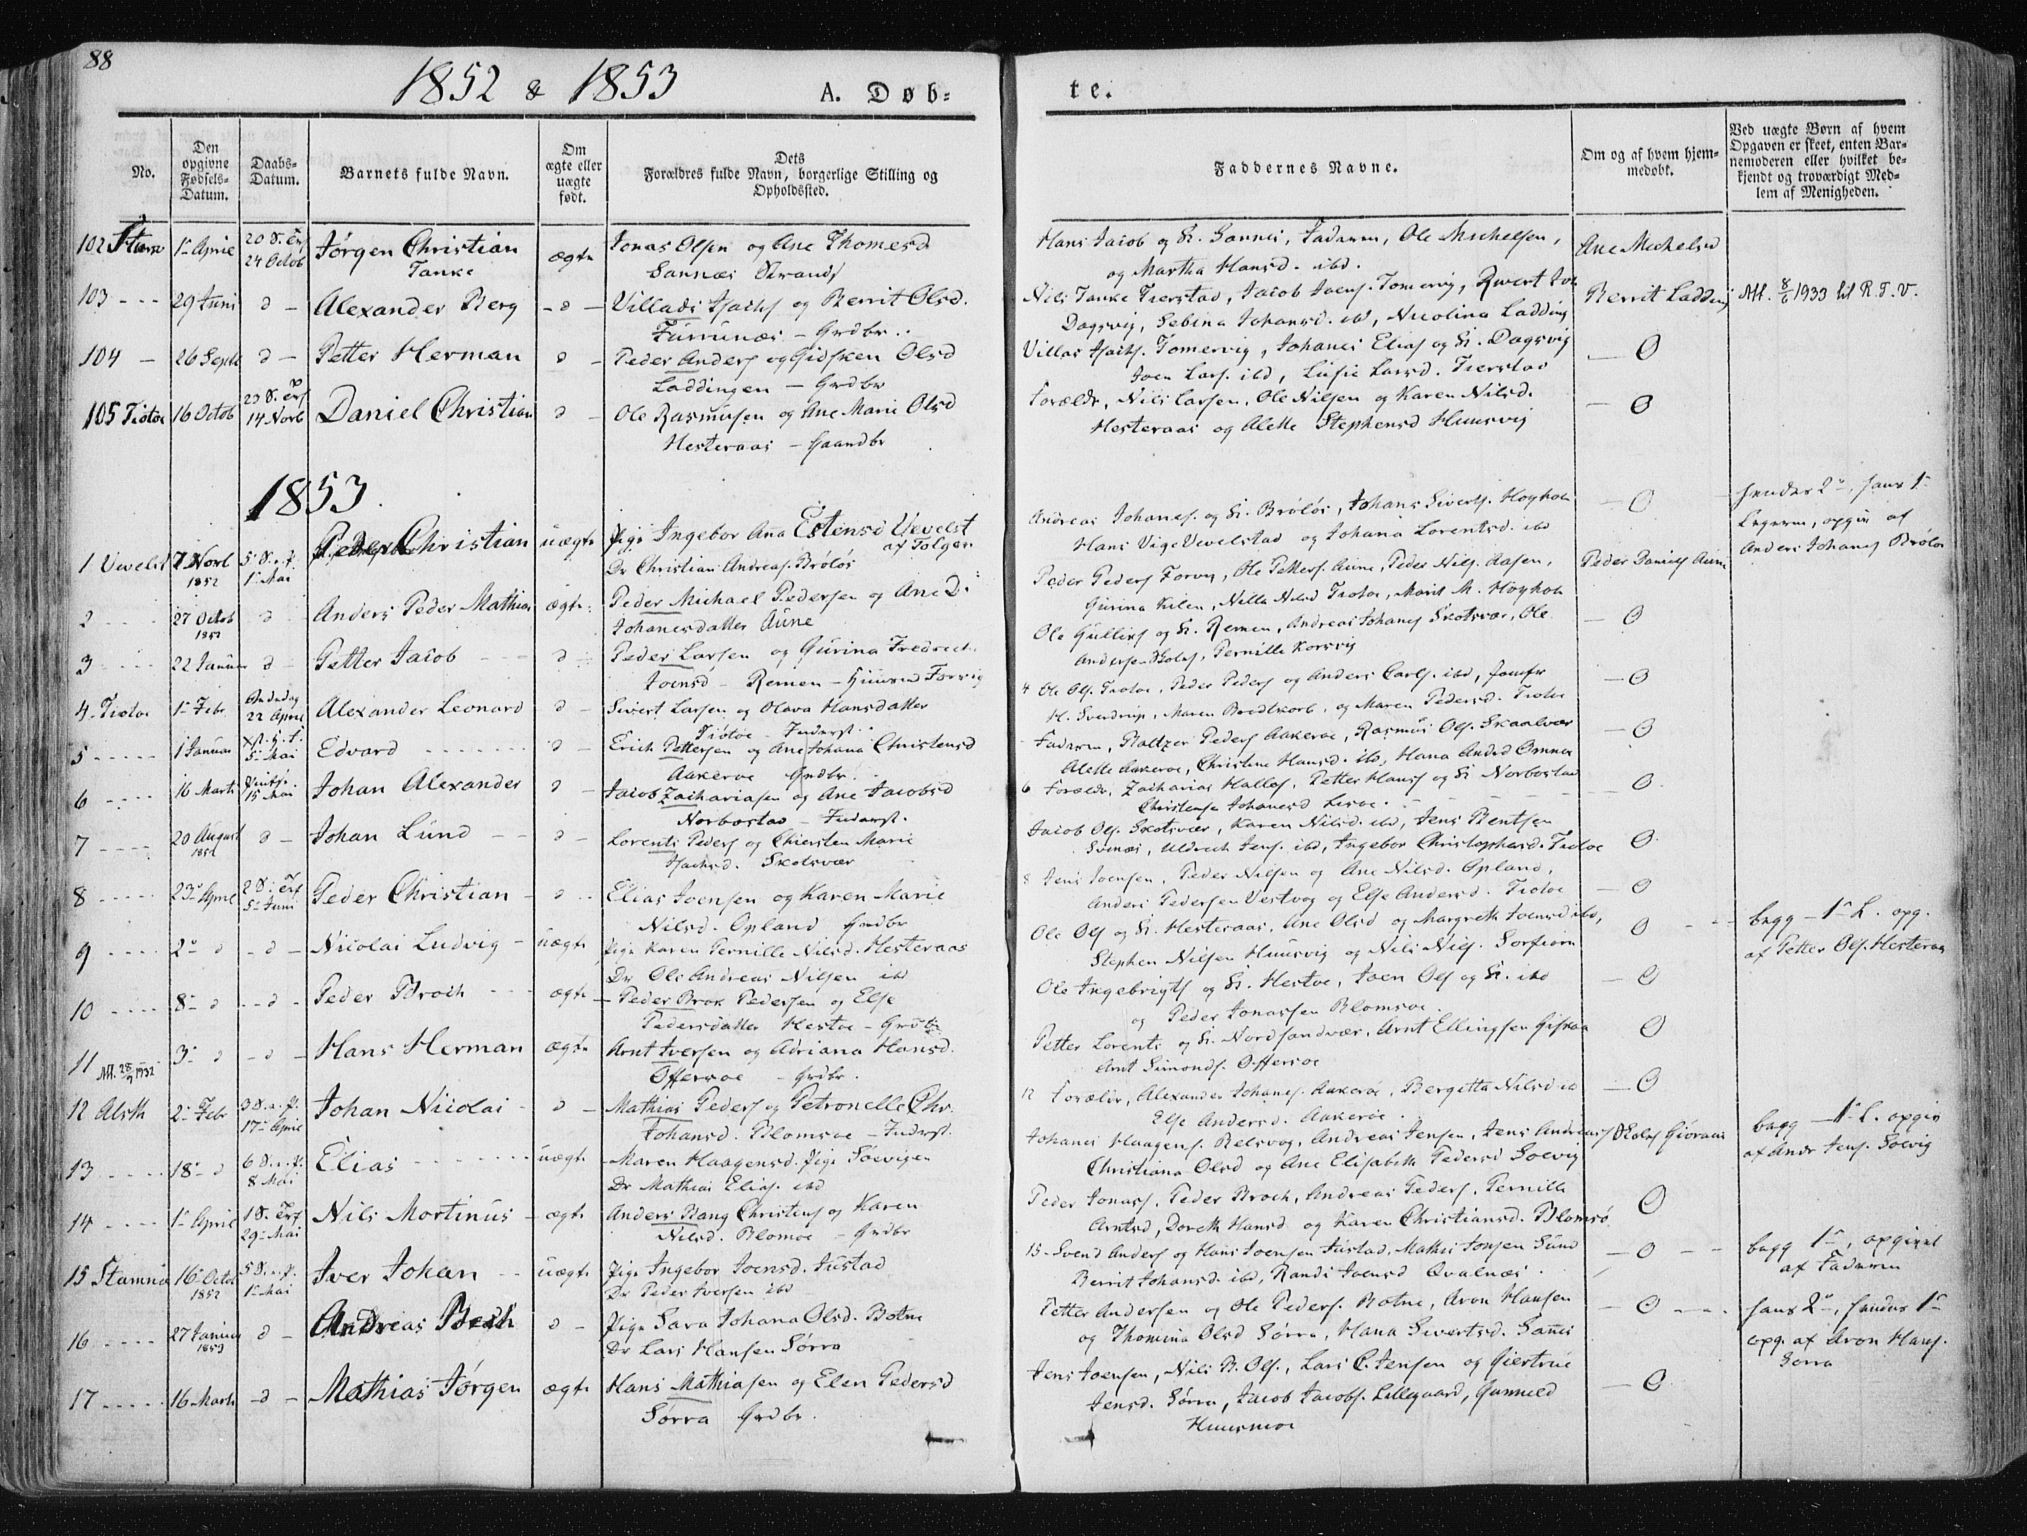 88
1852 & 1853 A. Døb-
te.
No.
Den opgivne Fødsels-Datum.
Daabs-Datum.
Barnets fulde Navn.
Om ægte eller uægte født.
Dets Forældres fulde Navn, borgerlige Stilling og Opholdssted.
Faddernes Navne.
Om og af hvem hjemmedøbt.
Ved uægte Børn af hvem Opgaven er skeet, enten Barnemoderen eller hvilket bekjendt og troværdigt Medlem af Menigheden.
102 1 April 24 Octob Jørgen Christian Tanke ægte Jonas Olsen og Ane Thomesd
Sannæs Strands
og Martha Hansd. ibd.
Ane Michelsd
103 29 Juni d Alexander Berg d Villads Isachs og Berrit Olsd.
Nils Tanke Tierstad, Jacob Joens. Tomervig,
Dagsvig, Sebina Johansd. ibd, Nicolina Ladding
Berrit Ladding Att. 8/6 1933 til R.T.V.
104 26 Septb d Petter Herman d Peder Anders og Gidsken Olsd
Laddingen Grdbr
Villas Isachs. Tomervig, Johanes Elias og H. Dagsvig
Joen Lars. ibd, Lusie Larsd. Tierstad
0
105 Tiotøe 16 Octob 23 S. Trf 14 Novb Daniel Christian d Ole Rasmusen og Ane Marie Olsd
Hesteraas Gaardbr
Forældr, Nils Larsen, Ole Nilsen og Karen Nilsd.
Hesteraas og Alette Stephensd Huusvig
0
1853.
1 Vevelst 7 Novb 1852 5 S. e. p. 1 Mai Peder Christian uægte Pige Ingebor Ana Estensd Vevelst
af Tolgen
Dr Christian Andreas. Brøløs
Andreas Johanes. og H. Brøløs, Johans Siverts. Høyholm
Hans Vige Vevelstad og Johana Lorentsd. ibd
0
hendes 2n, hans 1
Legerm, opgiv af
Anders Johanes Brøløs
2 27 Octob 1852 d Anders Peder Mathias ægte Peder Michael Pedersen og Ane D.
Johanesdatter Aune
Peder Peders Forvig, Ole Petters. Aune, Peder Nils. Aasen,
Gurina Kilen, Nilla Nilsd Tiotøe, Marit M. Høyholm
Peder Daniels Aune
3 22 Januar d Petter Jacob d Peder Larsen og Gurina Fredrech
Joensd Remen Huusmd Forvig
Ole Gullichs og H. Remen, Andreas Johanes Skotsvær, Ole
Pernille Korsvig
0
4 Tiotøe 1 Febr 22 April Alexander Leonard d Sivert Larsen og Olava Hansdatter
Tiotøe Inderst
4 Ole Ols. Tiotøe, Peder Peders og Anders Carls. ibd, Jomfr
H. Sverdrup, Maren Bredtkorb, og Maren Pedersd. Tiotøe
0
5 1 Januar 5 Mai Edvard d Erich Pettersen og Ane Johana Christensd
Aakerøe Grdbr.
Faderen, Baltzer Peders Aakerøe, Rasmus Ols. Skaalvær
Alette Aakerøe, Christine Hansd. ibd, Hana Andsd Omnøe
0
6 16 Marts 15 Mai Johan Alexander d Jacob Zachariasen og Ane Jacobsd
Norbostad Inderst.
6 Forældr, Zacharias Halles, Petter Hans og H. Norbostad
Christense Johanesd Lisøe.
0
7 20 August 1852 d Johan Lund d Lorents Peders og Chiersten Marie
Isachsd. Skotsvær
Jacob Ols. Skotsvær, Karen Nilsd. ibd, Jens Bentsen
Svinæs, Uldrich Jens. ibd, Ingebor Christophersd. Tiotøe
0
8 23 April 2 S. Trf 5 Juni Peder Christian d Elias Joensen og Karen Marie
Nilsd. Opland Grdbr
8 Jens Joensen, Peder Nilsen og Ane Nilsd. Opland,
Anders Pedersen Vestvog og Else Andersd. Tiotøe
0
9 2 d d Nicolai Ludvig uægte Pige Karen Pernille Nilsd. Hesteraas
Dr Ole Andreas Nilsen ibd
Ole Ols og H. Hesteraas, Ane Olsd og Margreth Joensd ibd,
Stephen Nilsen Huusvig og Nils Nils. Sørfiorn
0
begg 1 L. opg.
af Petter Ols. Hesteraas
10 8 d d Peder Broch ægte Peder Brok Pedersen og Else
Pedersdatter Hestøe Grdbr
Ole Ingebrigts og H. Hestøe, Joen Ols og H. ibd
og Peder Jonassen Blomsøe.
0
11 Att. 28/9 1932 3 d d Hans Herman ægte Arnt Iversen og Adriana Hansd.
Offersøe Grdbr.
Petter Lorents og H. Nordsandvær, Arnt Ellingsen Giskaa
Arnt Simonds. Offersøe
0
12 Alsth 2 Febr 3 S. e. p. 17 April Johan Nicolai d Mathias Peders og Petronelle Chr.
Johansd. Blomsøe Inderst.
12 Forældr, Alexander Johanes. Aakerøe, Bergitta Nilsd ibd
Else Andersd. Aakerøe.
0
13 18 d 6 S. e. p. 8 Mai Elias uægte Maren Haagensd. Pige Søevigen
Dr Mathias Elias. ibd
Johanes Haagens. Belsvog, Andreas Jensen, Jens Andreas
Christiana Olsd og Ane Elisabeth Pedersd Søevig
begg 1 L. opgiv
af Andr Jens. Søevig
14 1 April 1 S. Trf 29 Mai Nils Mortinus ægte Anders Bang Christens og Karen
Nilsd. Blomsøe Grdbr
Peder Jonass. Peder Broch, Andreas Peders. Pernille
Arntsd, Doreth Hansd og Karen Christiansd. Blomsø
0
15 Stamnæs 16 Octob 1852 5 S. e. p. 1 Mai Iver Johan uægte Pige Ingebor Joensd. Justad
Dr Peder Iversen ibd
15 Svend Anders og Hans Joensen Justad, Mathis Jonsen Sund
Berrit Johansd. ibd, Randi Joensd Qvalnæs.
0
begg 1, opgivet
af Faderen
16 27 Januar 1853 d Andreas Bech d Pige Sara Johana Olsd. Botne
Dr Lars Hansen Sørra
Petter Andersen og Ole Peders. Botne, Aron Hansen
og Thomina Olsd Sørra, Hana Sivertsd. Sannes
0
hans 2n, hendes 1
opg. af Aron Hans.
Sørra
17 16 Marts d Mathias Jørgen ægte Hans Mathiasen og Elen Pedersd
Sørra Grdbr.
Jens Joensen, Nils B. Ols., Lars C. Jensen og Giertrue
Jensd. Sørra, Jacob Jacobs. Lillegaard, Gunnild
Huusmoe
0